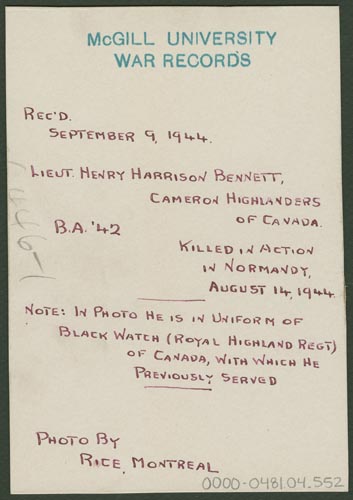 McGILL UNIVERSITY
WAR RECORDS
REC'D.
SEPTEMBER 9, 1944.
LIEUT. HENRY HARRISON BENNETT,
CAMERON HIGHLANDERS
OF CANADA.
B.A. '42
KILLED IN ACTION
IN NORMANDY,
AUGUST 14, 1944
NOTE: IN PHOTO HE IS IN UNIFORM OF
BLACK WATCH (ROYAL HIGHLAND REGT)
OF CANADA, WITH WHICH HE
PREVIOUSLY SERVED
PHOTO BY
RICE, MONTREAL
0000-0481.04.552